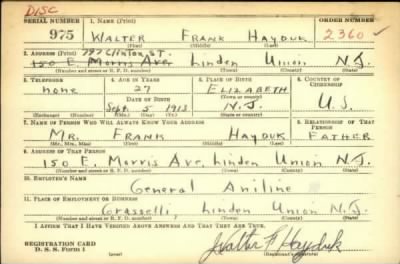 DISC
SERIAL NUMBER 1. NAME (Print) ORDER NUMBER
975 WALTER FRANK HAYDUK 2360
(First) (Middle) (Last)
2. ADDRESS (Print) 797 Clinton ST.
150 E Morris Ave Linden Union N.J.
(Number and street or R. F. D. number) (Town) (County) (State)
3. TELEPHONE 4. AGE IN YEARS 5. PLACE OF BIRTH 6. COUNTRY OF CITIZENSHIP
none 27 ELIZABETH
(Town or county)
DATE OF BIRTH
Sept. 5 1913 N.J. U.S.
(Exchange) (Number) (Mo.) (Day) (Yr.) (State or country)
7. NAME OF PERSON WHO WILL ALWAYS KNOW YOUR ADDRESS 8. RELATIONSHIP OF THAT PERSON
MR. FRANK HAYDUK FATHER
(Mr., Mrs., Miss) (First) (Middle) (Last)
9. ADDRESS OF THAT PERSON
150 E. Morris Ave. Linden Union N.J.
(Number and street or R. F. D. number) (Town) (County) (State)
10. EMPLOYER'S NAME
General Aniline
11. PLACE OF EMPLOYMENT OR BUSINESS
Grasselli, Linden Union N.J.
(Number and street or R. F. D. number) (Town) (County) (State)
I AFFIRM THAT I HAVE VERIFIED ABOVE ANSWERS AND THAT THEY ARE TRUE.
REGISTRATION CARD
D. S. S. Form 1
Walter F Hayduk
(Registrant's signature)